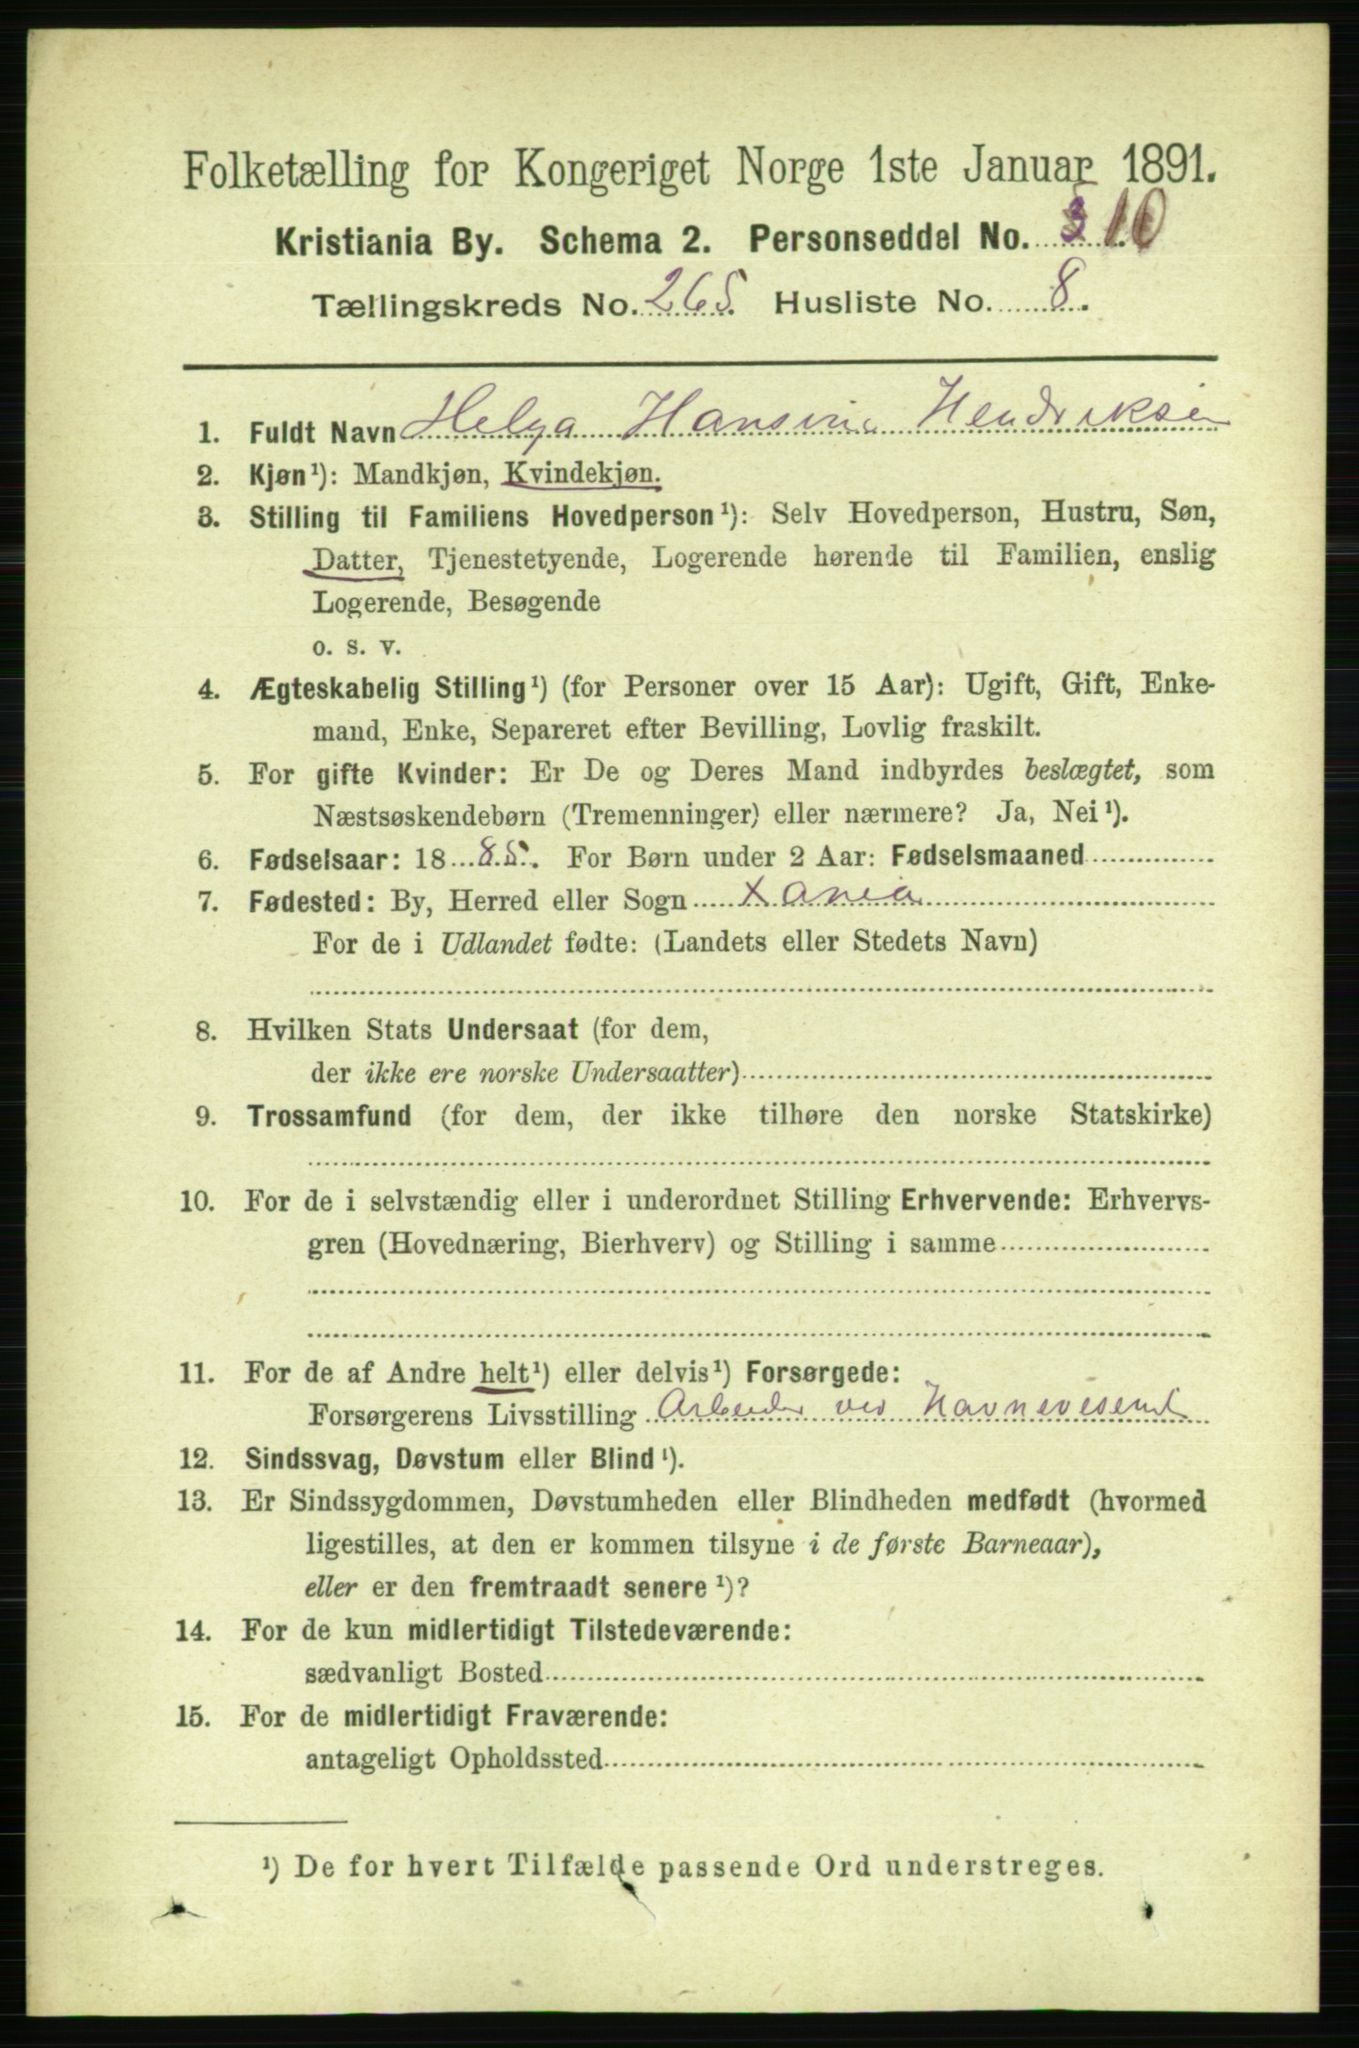 Folketælling for Kongeriget Norge 1ste Januar 1891.
Kristiania By. Schema 2. Personseddel No. 3 10
Tællingskreds No. 265. Husliste No. 8.
1. Fuldt Navn Helga Hansine Hendriksen
2. Kjøn¹): Mandkjøn, Kvindekjøn.
3. Stilling til Familiens Hovedperson¹): Selv Hovedperson, Hustru, Søn,
Datter, Tjenestetyende, Logerende hørende til Familien, enslig
Logerende, Besøgende
o. s. v.
4. Ægteskabelig Stilling¹) (for Personer over 15 Aar): Ugift, Gift, Enke-
mand, Enke, Separeret efter Bevilling, Lovlig fraskilt.
5. For gifte Kvinder: Er De og Deres Mand indbyrdes beslægtet, som
Næstsøskendebørn (Tremenninger) eller nærmere? Ja, Nei¹).
6. Fødselsaar: 18 85. For Børn under 2 Aar: Fødselsmaaned
7. Fødested: By, Herred eller Sogn Xania
For de i Udlandet fødte: (Landets eller Stedets Navn)
8. Hvilken Stats Undersaat (for dem,
der ikke ere norske Undersaatter)
9. Trossamfund (for dem, der ikke tilhøre den norske Statskirke)
10. For de i selvstændig eller i underordnet Stilling Erhvervende: Erhvervs-
gren (Hovednæring, Bierhverv) og Stilling i samme
11. For de af Andre helt¹) eller delvis¹) Forsørgede:
Forsørgerens Livsstilling Arbeider ved Havnevesenet
12. Sindssvag, Døvstum eller Blind¹).
13. Er Sindssygdommen, Døvstumheden eller Blindheden medfødt (hvormed
ligestilles, at den er kommen tilsyne i de første Barneaar),
eller er den fremtraadt senere¹)?
14. For de kun midlertidigt Tilstedeværende:
sædvanligt Bosted
15. For de midlertidigt Fraværende:
antageligt Opholdssted
¹) De for hvert Tilfælde passende Ord understreges.